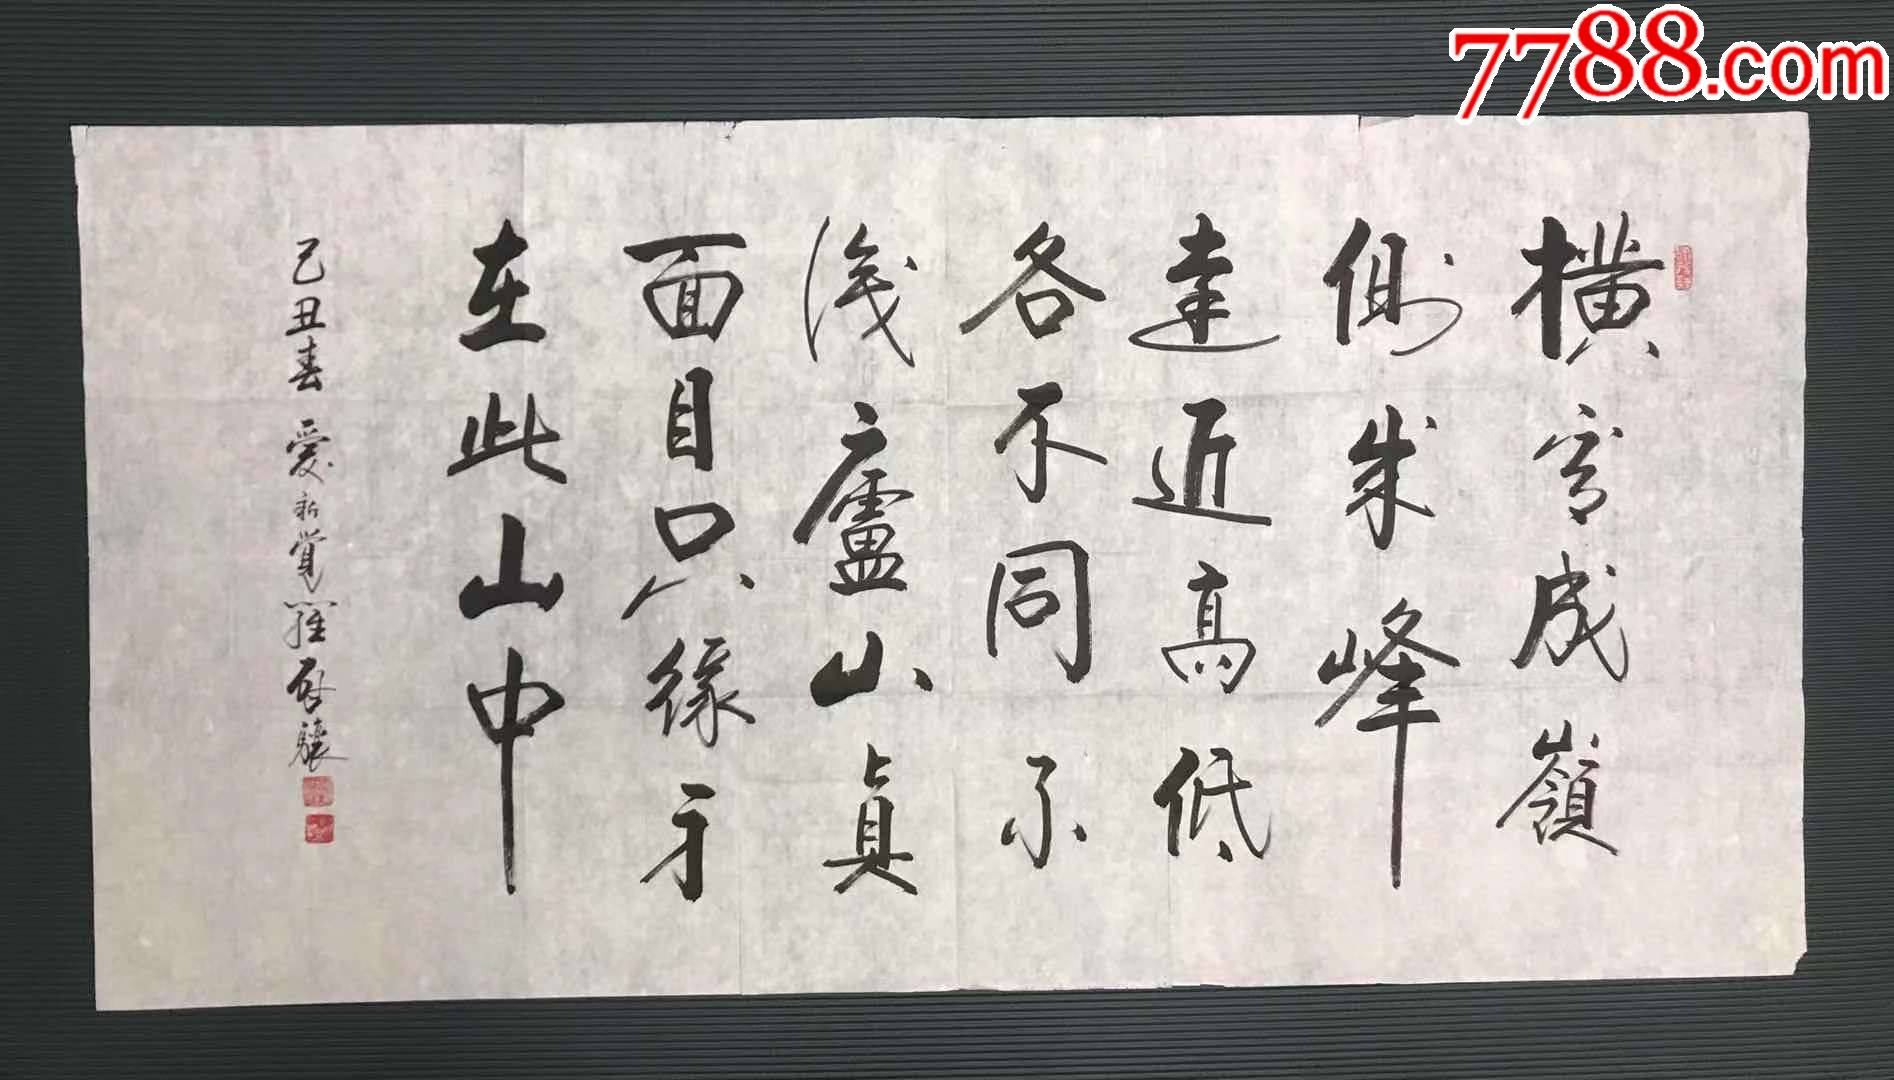 7788.com
橫看成嶺
側成峰
遠近高低
各不同不
識廬山真
面目只緣身
在此山中
己丑春 愛新覺羅啟驤